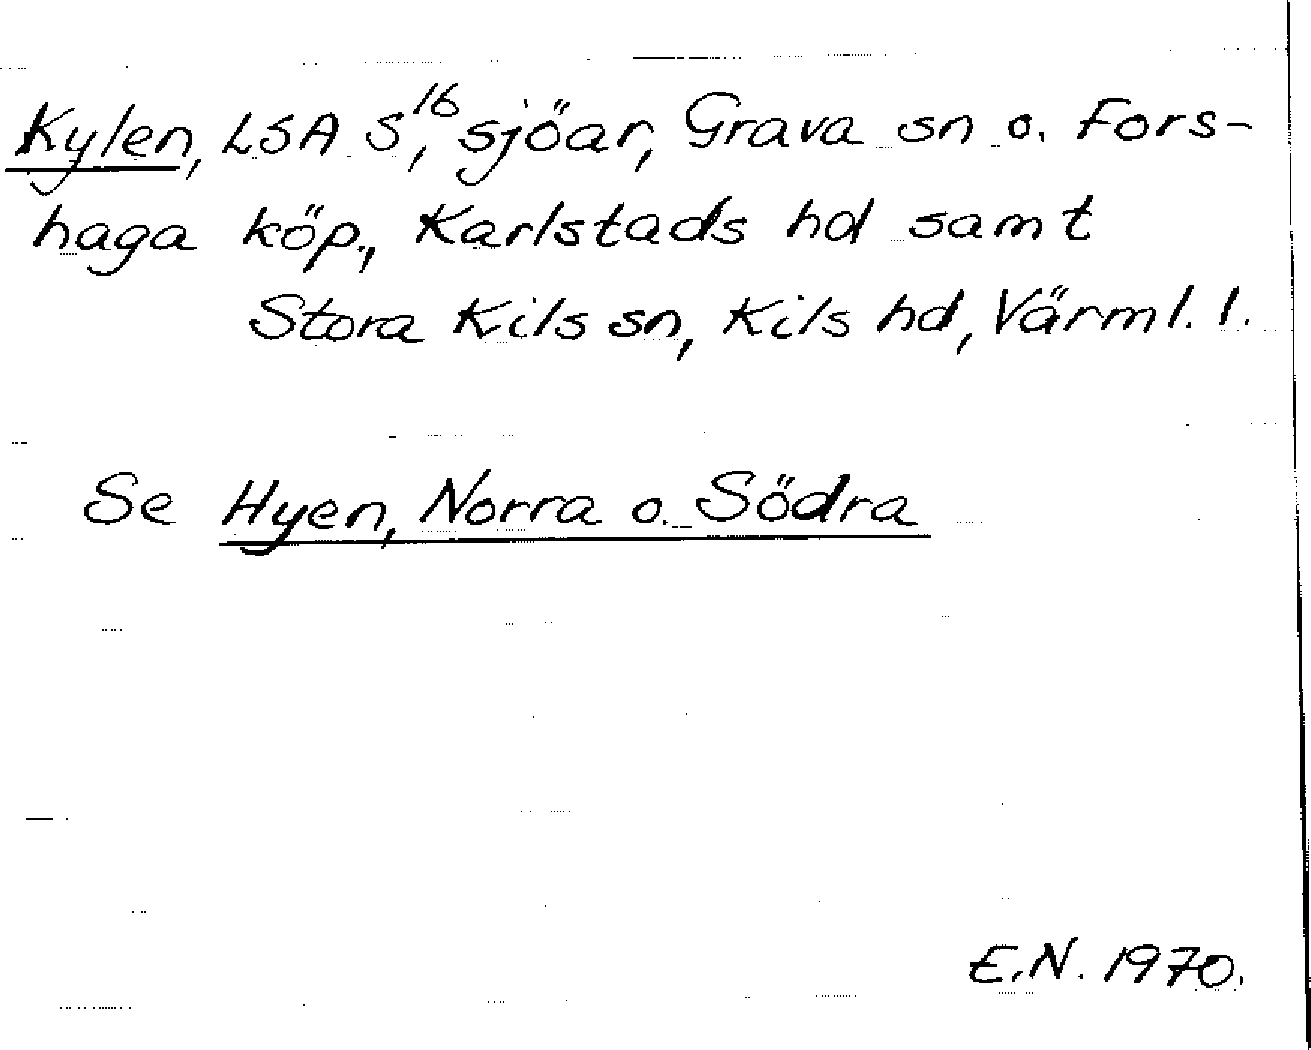 Kylen, LSA S¹⁶, sjöar, Grava sn o. Fors-
haga köp., Karlstads hd samt
Stora Kils sn, Kils hd, Värml. l.
Se Hyen, Norra o. Södra
E.N. 1970.